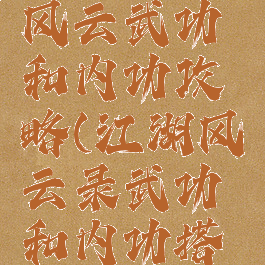 风云武功
和内功攻
略(江湖风
云录武功
和内功搭